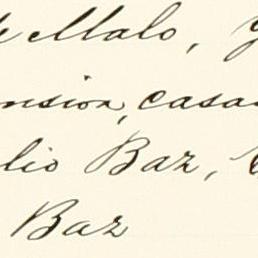 Malo,
nsion, casa
lio Baz,
Baz